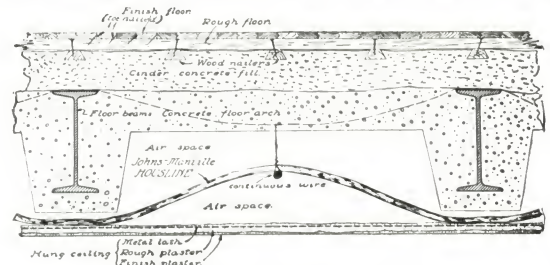 Finish floor
(toe nailed)
Rough floor
Wood nailers
Cinder concrete fill
Floor beams Concrete floor arch
Air space
Johns-Manville
HOUSLINE
continuous wire
Air space
Metal lath
Hung ceiling { Rough plaster
Finish plaster